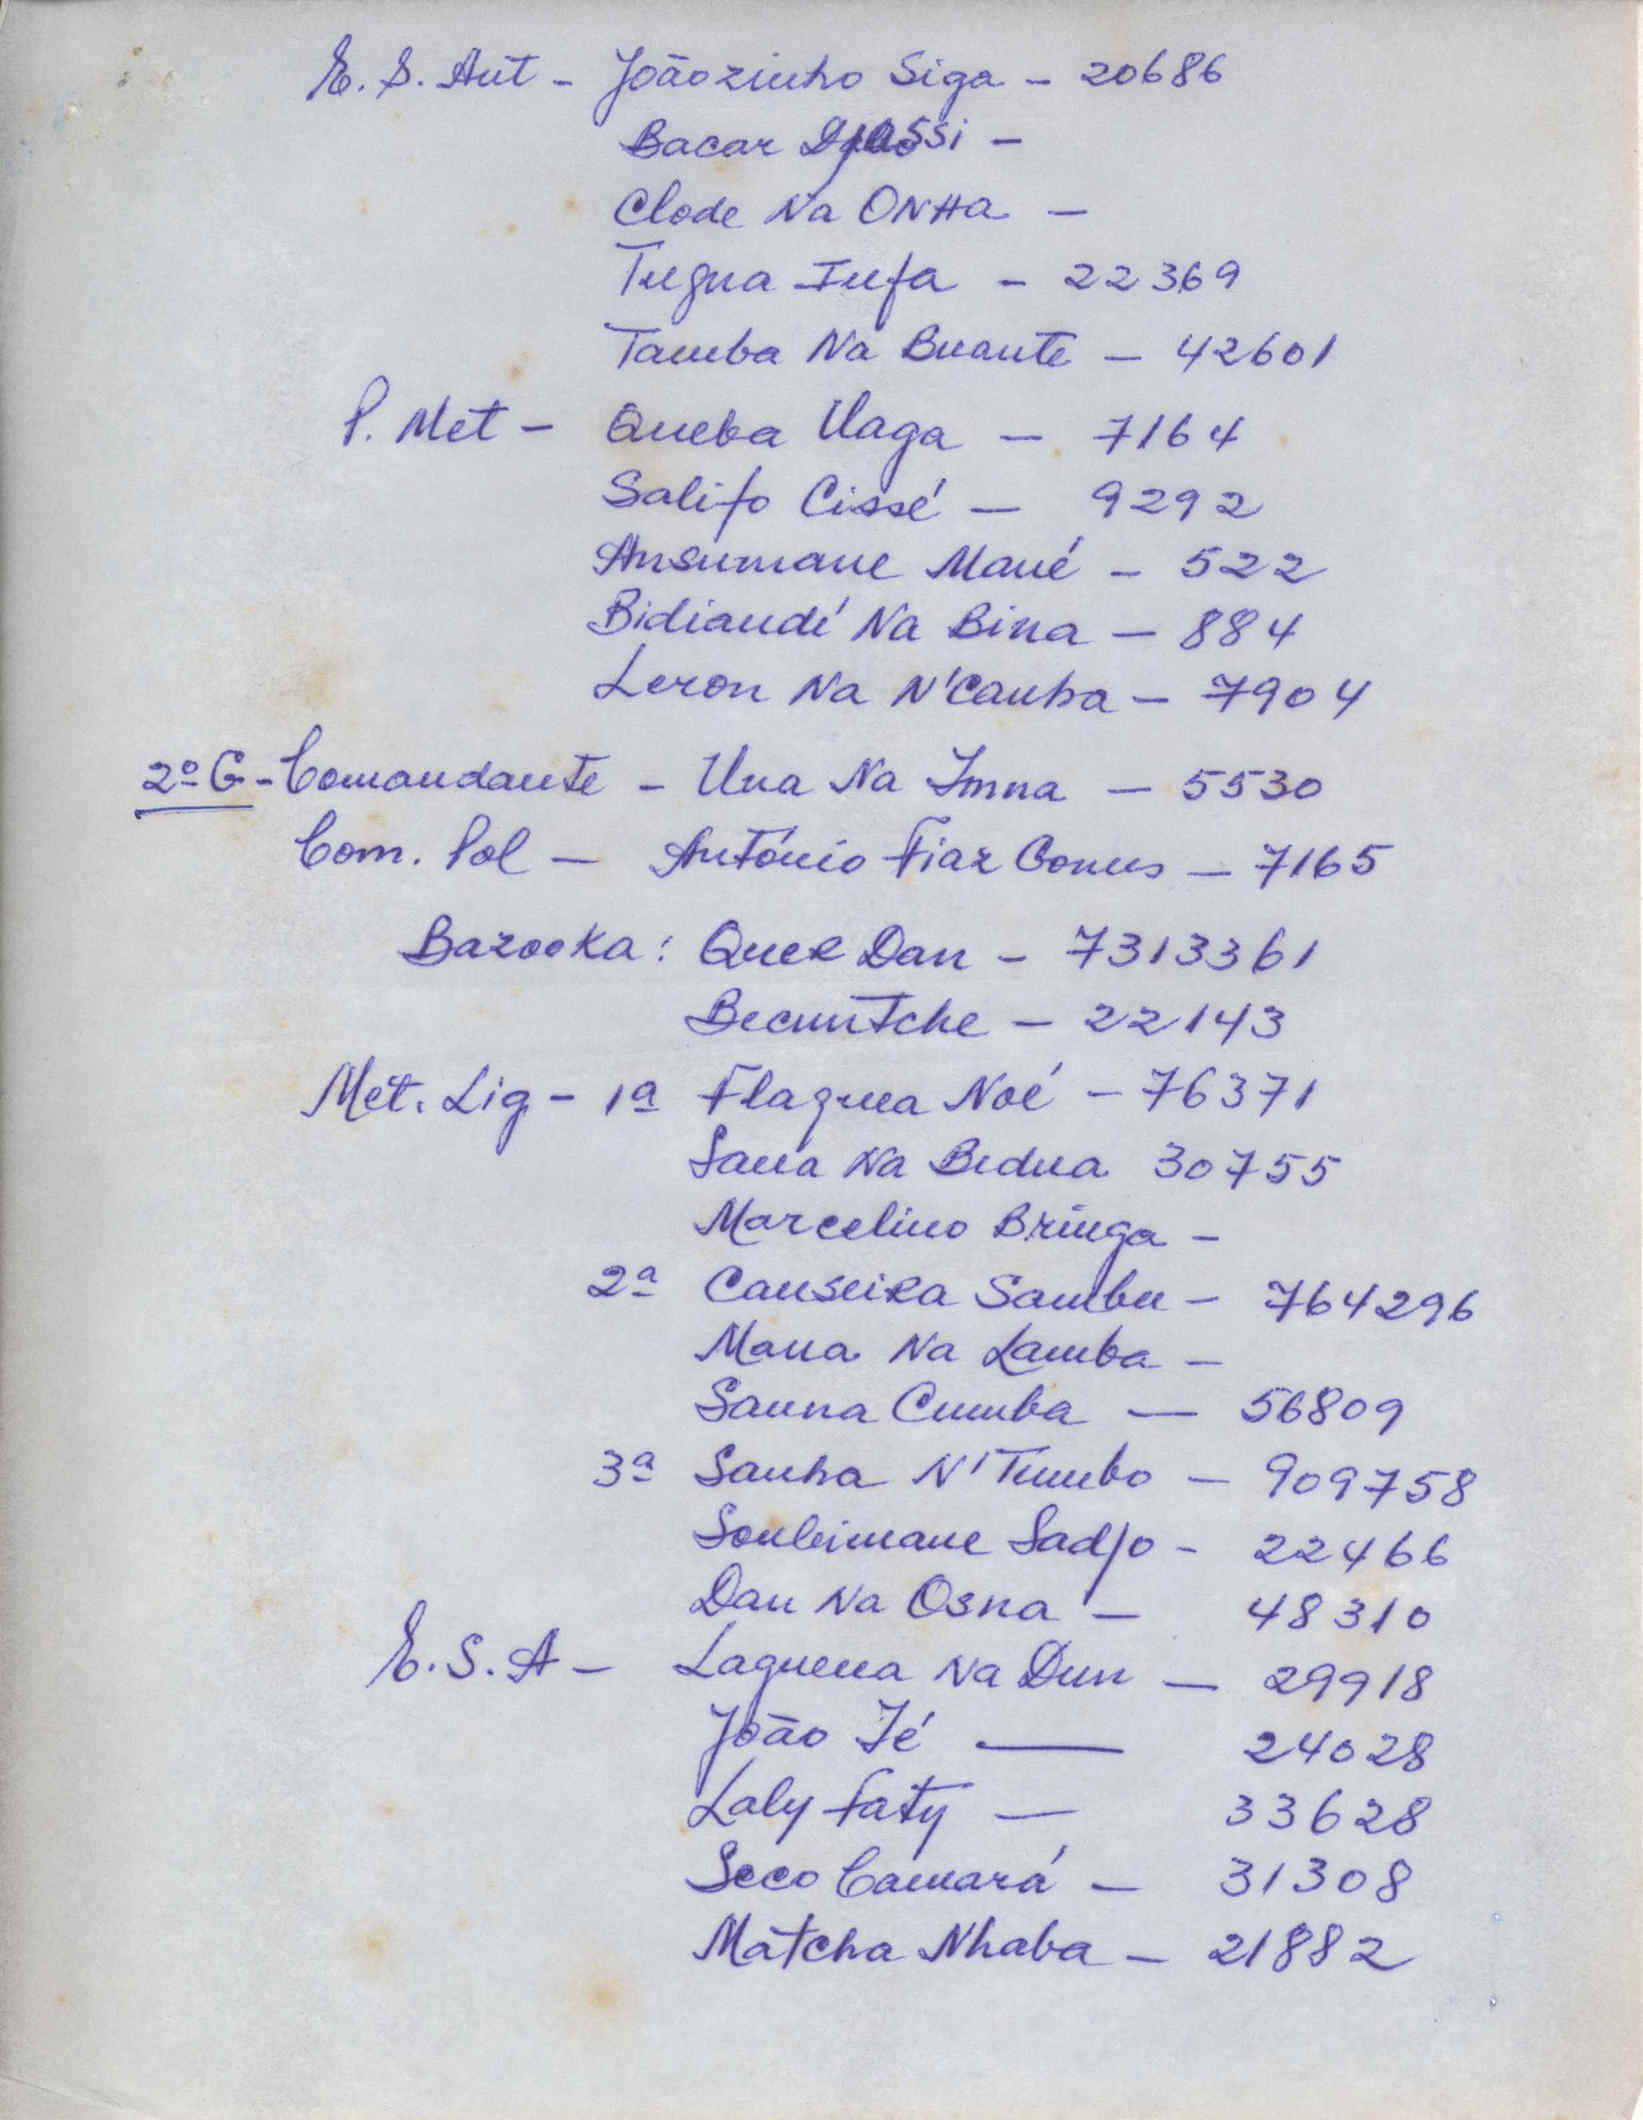 E. S. Aut - Joãozinho Siga - 20686
Bacar Djassi -
Clode Na ONHa -
Tugna Iufa - 22369
Tamba Na Buante - 42601
P. Met - Queba Uaga - 7164
Salifo Cissé - 9292
Ansumane Mané - 522
Bidiandé Na Bina - 884
Leron Na N'Canha - 7904
2º G - Comandante - Una Na Imna - 5530
Com. Pol - António Fiaz Gomes - 7165
Bazooka: Quer Dan - 7313361
Becuntche - 22143
Met. Lig - 1ª Flagna Noé - 76371
Sana Na Bedna 30755
Marcelino Bringa -
2ª Canseira Sambu - 764296
Mana Na Lamba -
Sanna Cumba - 56809
3ª Sanha N'Tumbo - 909758
Souleimane Sadjo - 22466
Dan Na Osna - 48310
E. S. A - Laguena Na Dun - 29918
João Té - 24028
Laly Faty - 33628
Seco Camará - 31308
Matcha Nhaba - 21882